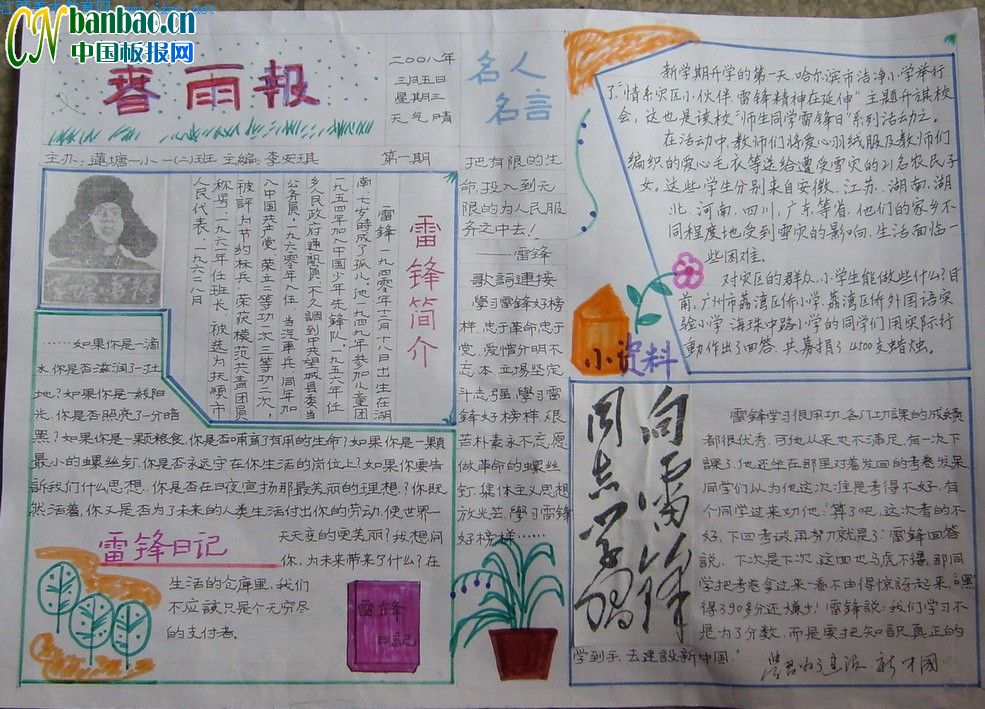 CN banbao.cn
中国板报网
春雨報
二〇〇八年
三月五日
星期三
天气晴
主办:蓮塘一小一(二)班 主編:李安琪 第一期
名人
名言
把有限的生
命,投入到无
限的为人民服
务之中去!
——雷锋
歌詞連接
學习雷锋好榜
样,忠于革命忠于
党,爱憎分明不
忘本,立場坚定
斗志强,學习雷
锋好榜样,艰
苦朴素永不忘,愿
做革命的螺丝
釘,集体主义思想
放光芒,學习雷锋
好榜样……
雷锋简介
雷锋,一九四零年十二月十八日出生在湖
南,七岁時成了孤儿。他一九四九年参加儿童团
一九五四年加入中国少年先鋒队,一九五六年任
乡人民政府通訊員,不久調到中共望城县委当
公务員,一九六零年入伍,当汽車兵,同年加
入中国共产党,荣立二等功一次,三等功二次,
被評为节约标兵,荣获模范共青团員
称号,一九六一年任班长,被选为抚顺市
人民代表,一九六二年八月
……如果你是一滴
水,你是否滋润了一寸土
地?如果你是一線阳
光,你是否照亮了一分暗
黑?如果你是一颗粮食,你是否哺育了有用的生命?如果你是一顆
最小的螺丝钉,你是否永远守在你生活的岗位上?如果你要告
訴我们什么思想,你是否在日夜宣扬那最美丽的理想?你既
然活着,你又是否为了未来的人类生活付出你的劳动,使世界一
天天变的更美丽?我想问
你,为未来带来了什么?在
生活的仓库里,我们
不应該只是个无穷尽
的支付者。
雷锋日记
雷锋
日記
新学期开学的第一天,哈尔滨市洁净小学举行
了"情系灾区小伙伴,雷锋精神在延伸"主题升旗校
会,这也是该校"师生同学雷锋日"系列活动之一。
在活动中,教师们将爱心羽绒服及教师们
编织的爱心毛衣等送给遭受雪灾的21名农民子
女。这些学生分别来自安徽、江苏、湖南、湖
北、河南、四川、广东等省,他们的家乡不
同程度地受到雪灾的影响,生活面临一
些困难。
对灾区的群众,小学生能做些什么?目
前,广州市荔湾区侨小学、荔湾区侨外国语实
验小学、海珠中路小学的同学们用实际行
動作出了回答,共募捐了4500支蜡烛。
小资料
向雷锋
同志学習
雷锋学习很用功,各门功課的成績
都很优秀,可他从来也不满足,有一次下
課了,他还坐在那里对着发回的考卷发呆
同学们以为他这次准是考得不好,有
个同学过来劝他:"算了吧,这次考的不
好,下回考試再努力就是了"雷锋回答
説,下次是下次,这回也马虎不得,那同
学把考卷拿过来一看不由得惊訝起来,"嘿
得了90多分还嫌少!雷锋説:我们学习不
是为了分数,而是要把知识真正的
学到手,去建設新中国."